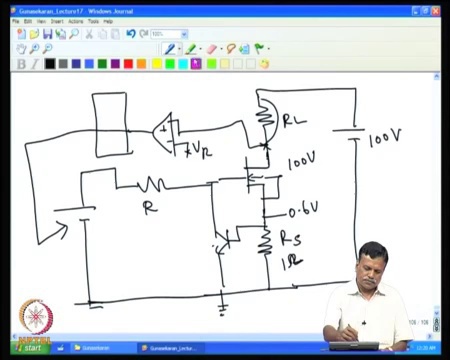 Gunasekaran_Lecture17 - Windows Journal
File Edit View Insert Actions Tools Help
100%
B I
RL
+
VR
100V
100V
R
0.6V
RS
1Ω
start
Gunasekaran
Gunasekaran_Lectu...